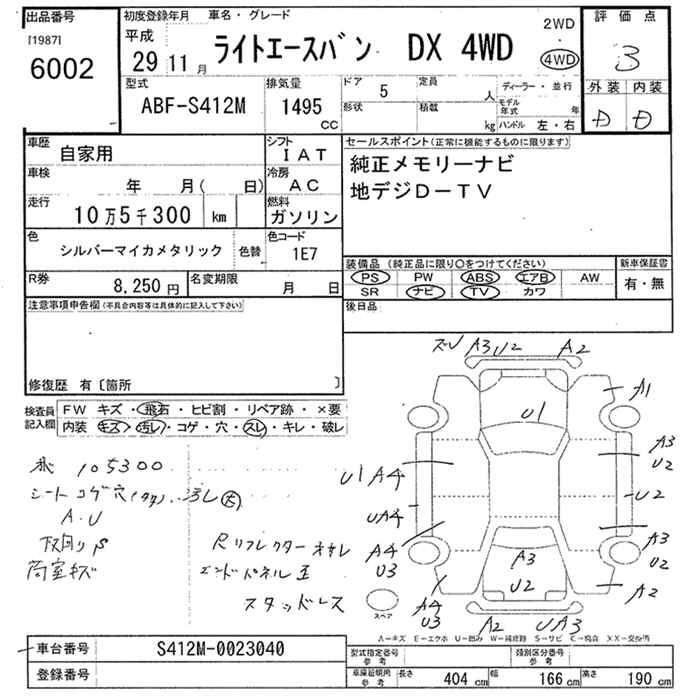 出品番号
[1987]
6002
初度登録年月 車名・グレード
平成
29 11 月
ライトエースバン DX 4WD
2WD
4WD
評価点
3
型式
ABF-S412M
排気量
1495
CC
ドア 5
形状
定員 人
積載 kg
ディーラー・並行
モデル年式 年
ハンドル 左・右
外装 内装
D D
車歴
自家用
車検 年 月( 日)
走行
10万5千300 km
色
シルバーマイカメタリック 色替
R券
8,250円
名変期限 月 日
シフト
IAT
冷房
AC
燃料
ガソリン
色コード
1E7
セールスポイント(正常に機能するものに限ります)
純正メモリーナビ
地デジD-TV
装備品(純正品に限り○をつけてください)
PS PW ABS エアB AW
SR ナビ TV カワ
新車保証書
有・無
後日品
注意事項申告欄(不具合内容等は具体的に記入して下さい)
修復歴 有〔箇所 〕
検査員記入欄
FW キズ・飛石・ヒビ割・リペア跡・×要
内装 キズ・汚レ・コゲ・穴・スレ・キレ・破レ
105300
シートコゲ穴
A・U
下回りS
荷室キズ
Rリフレクター
エンドパネル
スタッドレス
ズレ A3 U2 A2
A1
U1
A3
U2
U1 A4
U2
UA4
A4
U3
A3
U2
A3
U2
A2
A4
U3
A2 UA3
スペア
A-キズ E-エクボ U-凹み W-補修跡 S-サビ C-腐食 XX-交換済
車台番号 S412M-0023040
登録番号
型式指定番号
参考
類別区分番号
参考
車検証積用
参考
長さ 404 cm 幅 166 cm 高さ 190 cm